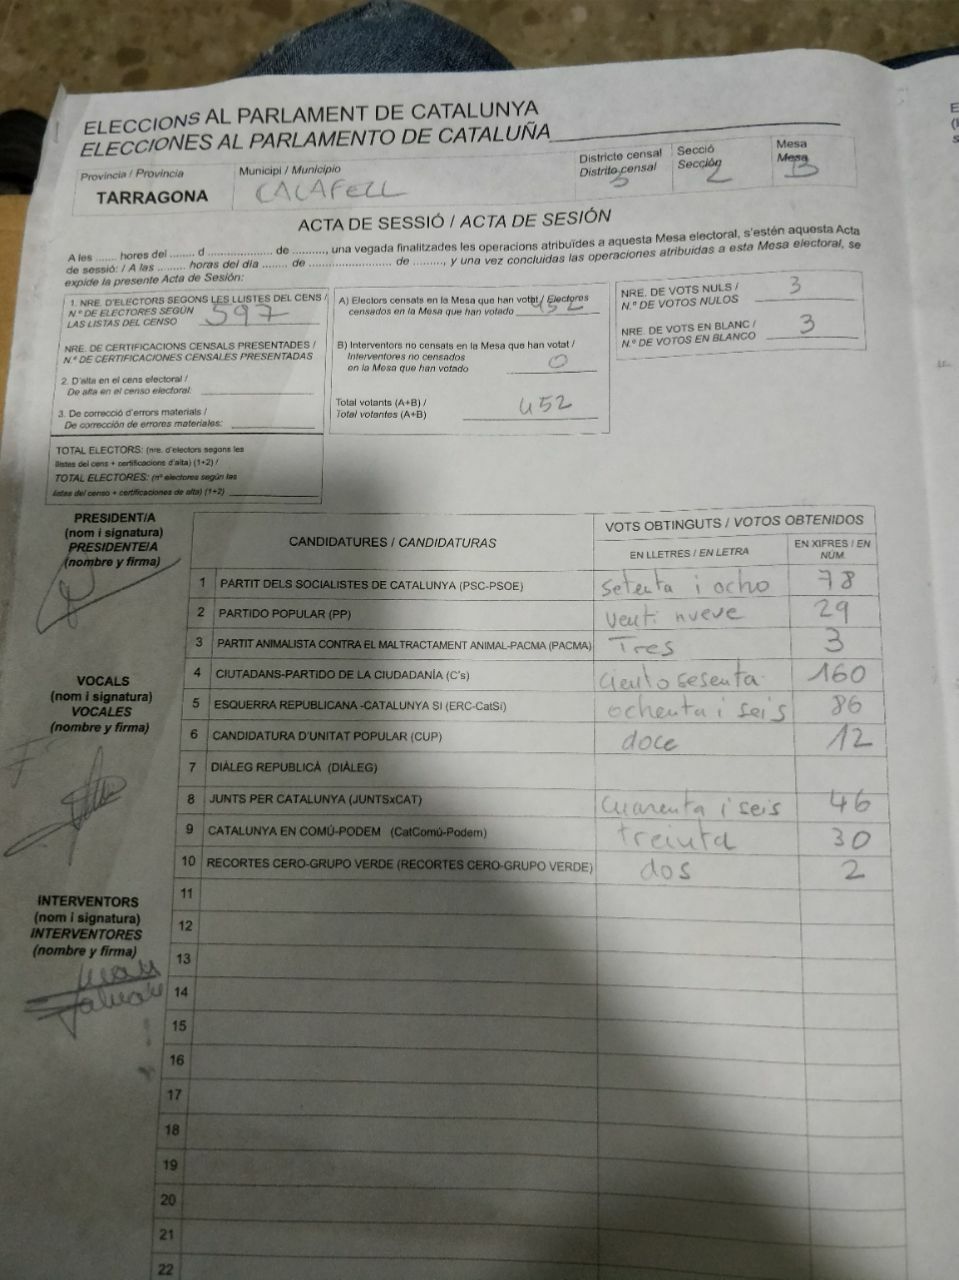 ELECCIONS AL PARLAMENT DE CATALUNYA
ELECCIONES AL PARLAMENTO DE CATALUÑA
Provincia / Provincia
TARRAGONA
Municipi / Municipio
CALAFELL
Districte censal
Distrito censal
3
Secció
Sección
2
Mesa
Mesa
B
ACTA DE SESSIÓ / ACTA DE SESIÓN
A les ...... hores del ....... d .................... de .........., una vegada finalitzades les operacions atribuïdes a aquesta Mesa electoral, s'estén aquesta Acta
de sessió: / A las ........ horas del día ....... de ...................... de ........, y una vez concluidas las operaciones atribuidas a esta Mesa electoral, se
expide la presente Acta de Sesión:
1. NRE. D'ELECTORS SEGONS LES LLISTES DEL CENS /
N.º DE ELECTORES SEGÚN
LAS LISTAS DEL CENSO 597
NRE. DE CERTIFICACIONS CENSALS PRESENTADES /
N.º DE CERTIFICACIONES CENSALES PRESENTADAS
2. D'alta en el cens electoral /
De alta en el censo electoral:
3. De correcció d'errors materials /
De corrección de errores materiales:
TOTAL ELECTORS: (nre. d'electors segons les
llistes del cens + certificacions d'alta) (1+2) /
TOTAL ELECTORES: (nº electores según las
listas del censo + certificaciones de alta) (1+2)
A) Electors censats en la Mesa que han votat / Electores
censados en la Mesa que han votado 452
B) Interventors no censats en la Mesa que han votat /
Interventores no censados
en la Mesa que han votado 0
Total votants (A+B) /
Total votantes (A+B) 452
NRE. DE VOTS NULS /
N.º DE VOTOS NULOS 3
NRE. DE VOTS EN BLANC /
N.º DE VOTOS EN BLANCO 3
PRESIDENT/A
(nom i signatura)
PRESIDENTE/A
(nombre y firma)
VOCALS
(nom i signatura)
VOCALES
(nombre y firma)
INTERVENTORS
(nom i signatura)
INTERVENTORES
(nombre y firma)
CANDIDATURES / CANDIDATURAS
VOTS OBTINGUTS / VOTOS OBTENIDOS
EN LLETRES / EN LETRA
EN XIFRES / EN
NÚM.
1 PARTIT DELS SOCIALISTES DE CATALUNYA (PSC-PSOE) setenta i ocho 78
2 PARTIDO POPULAR (PP) venti nueve 29
3 PARTIT ANIMALISTA CONTRA EL MALTRACTAMENT ANIMAL-PACMA (PACMA) Tres 3
4 CIUTADANS-PARTIDO DE LA CIUDADANÍA (C's) ciento sesenta 160
5 ESQUERRA REPUBLICANA -CATALUNYA SI (ERC-CatSí) ochenta i seis 86
6 CANDIDATURA D'UNITAT POPULAR (CUP) doce 12
7 DIÀLEG REPUBLICÀ (DIÀLEG)
8 JUNTS PER CATALUNYA (JUNTSxCAT) cuarenta i seis 46
9 CATALUNYA EN COMÚ-PODEM (CatComú-Podem) treinta 30
10 RECORTES CERO-GRUPO VERDE (RECORTES CERO-GRUPO VERDE) dos 2
11
12
13
14
15
16
17
18
19
20
21
22